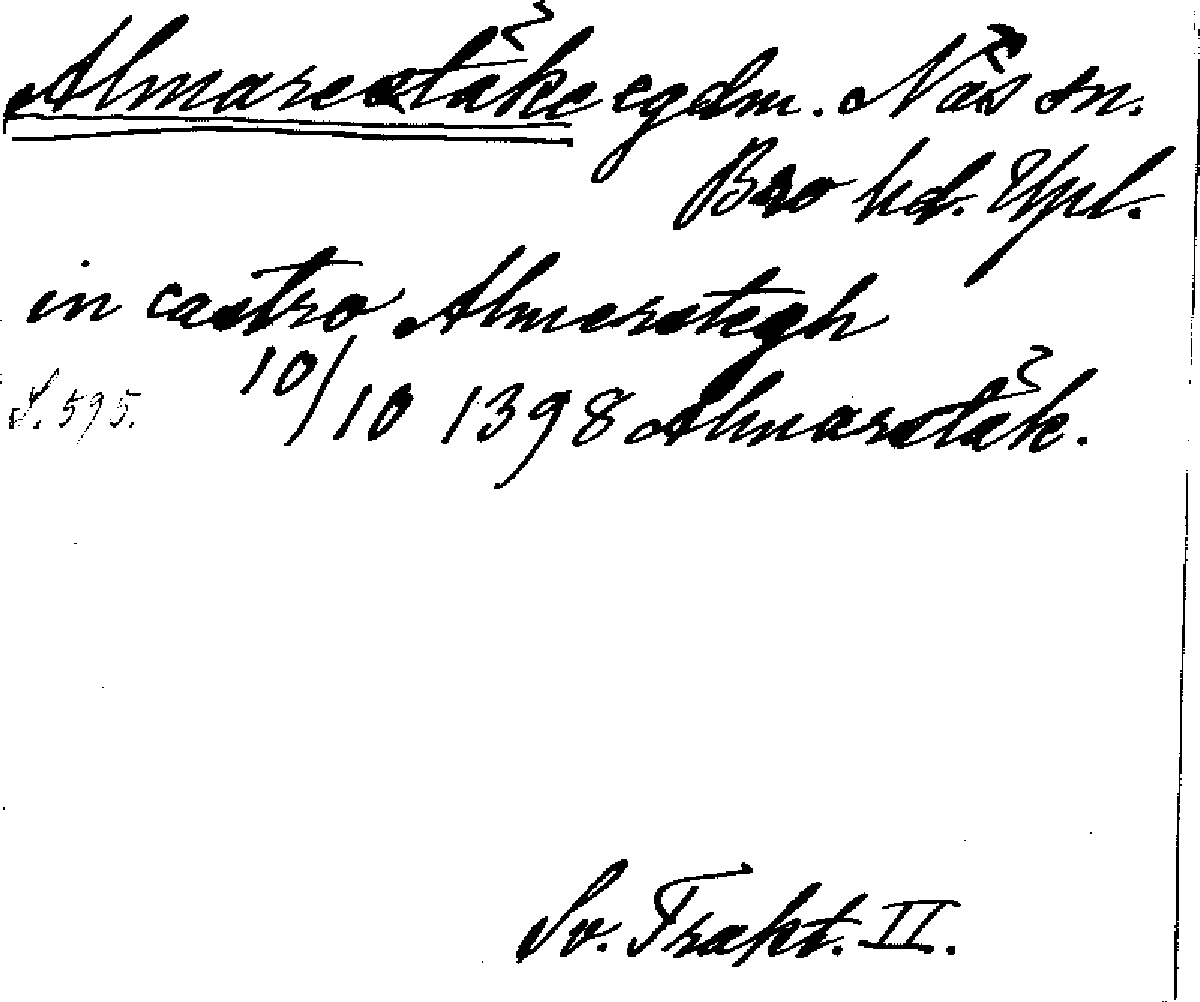 Almarestäke egdm. Näs sn.
Bro hd. Upl.
in castro Almerstegh
S. 595. 10/10 1398 Almarstäk.
Sv. Trakt. II.